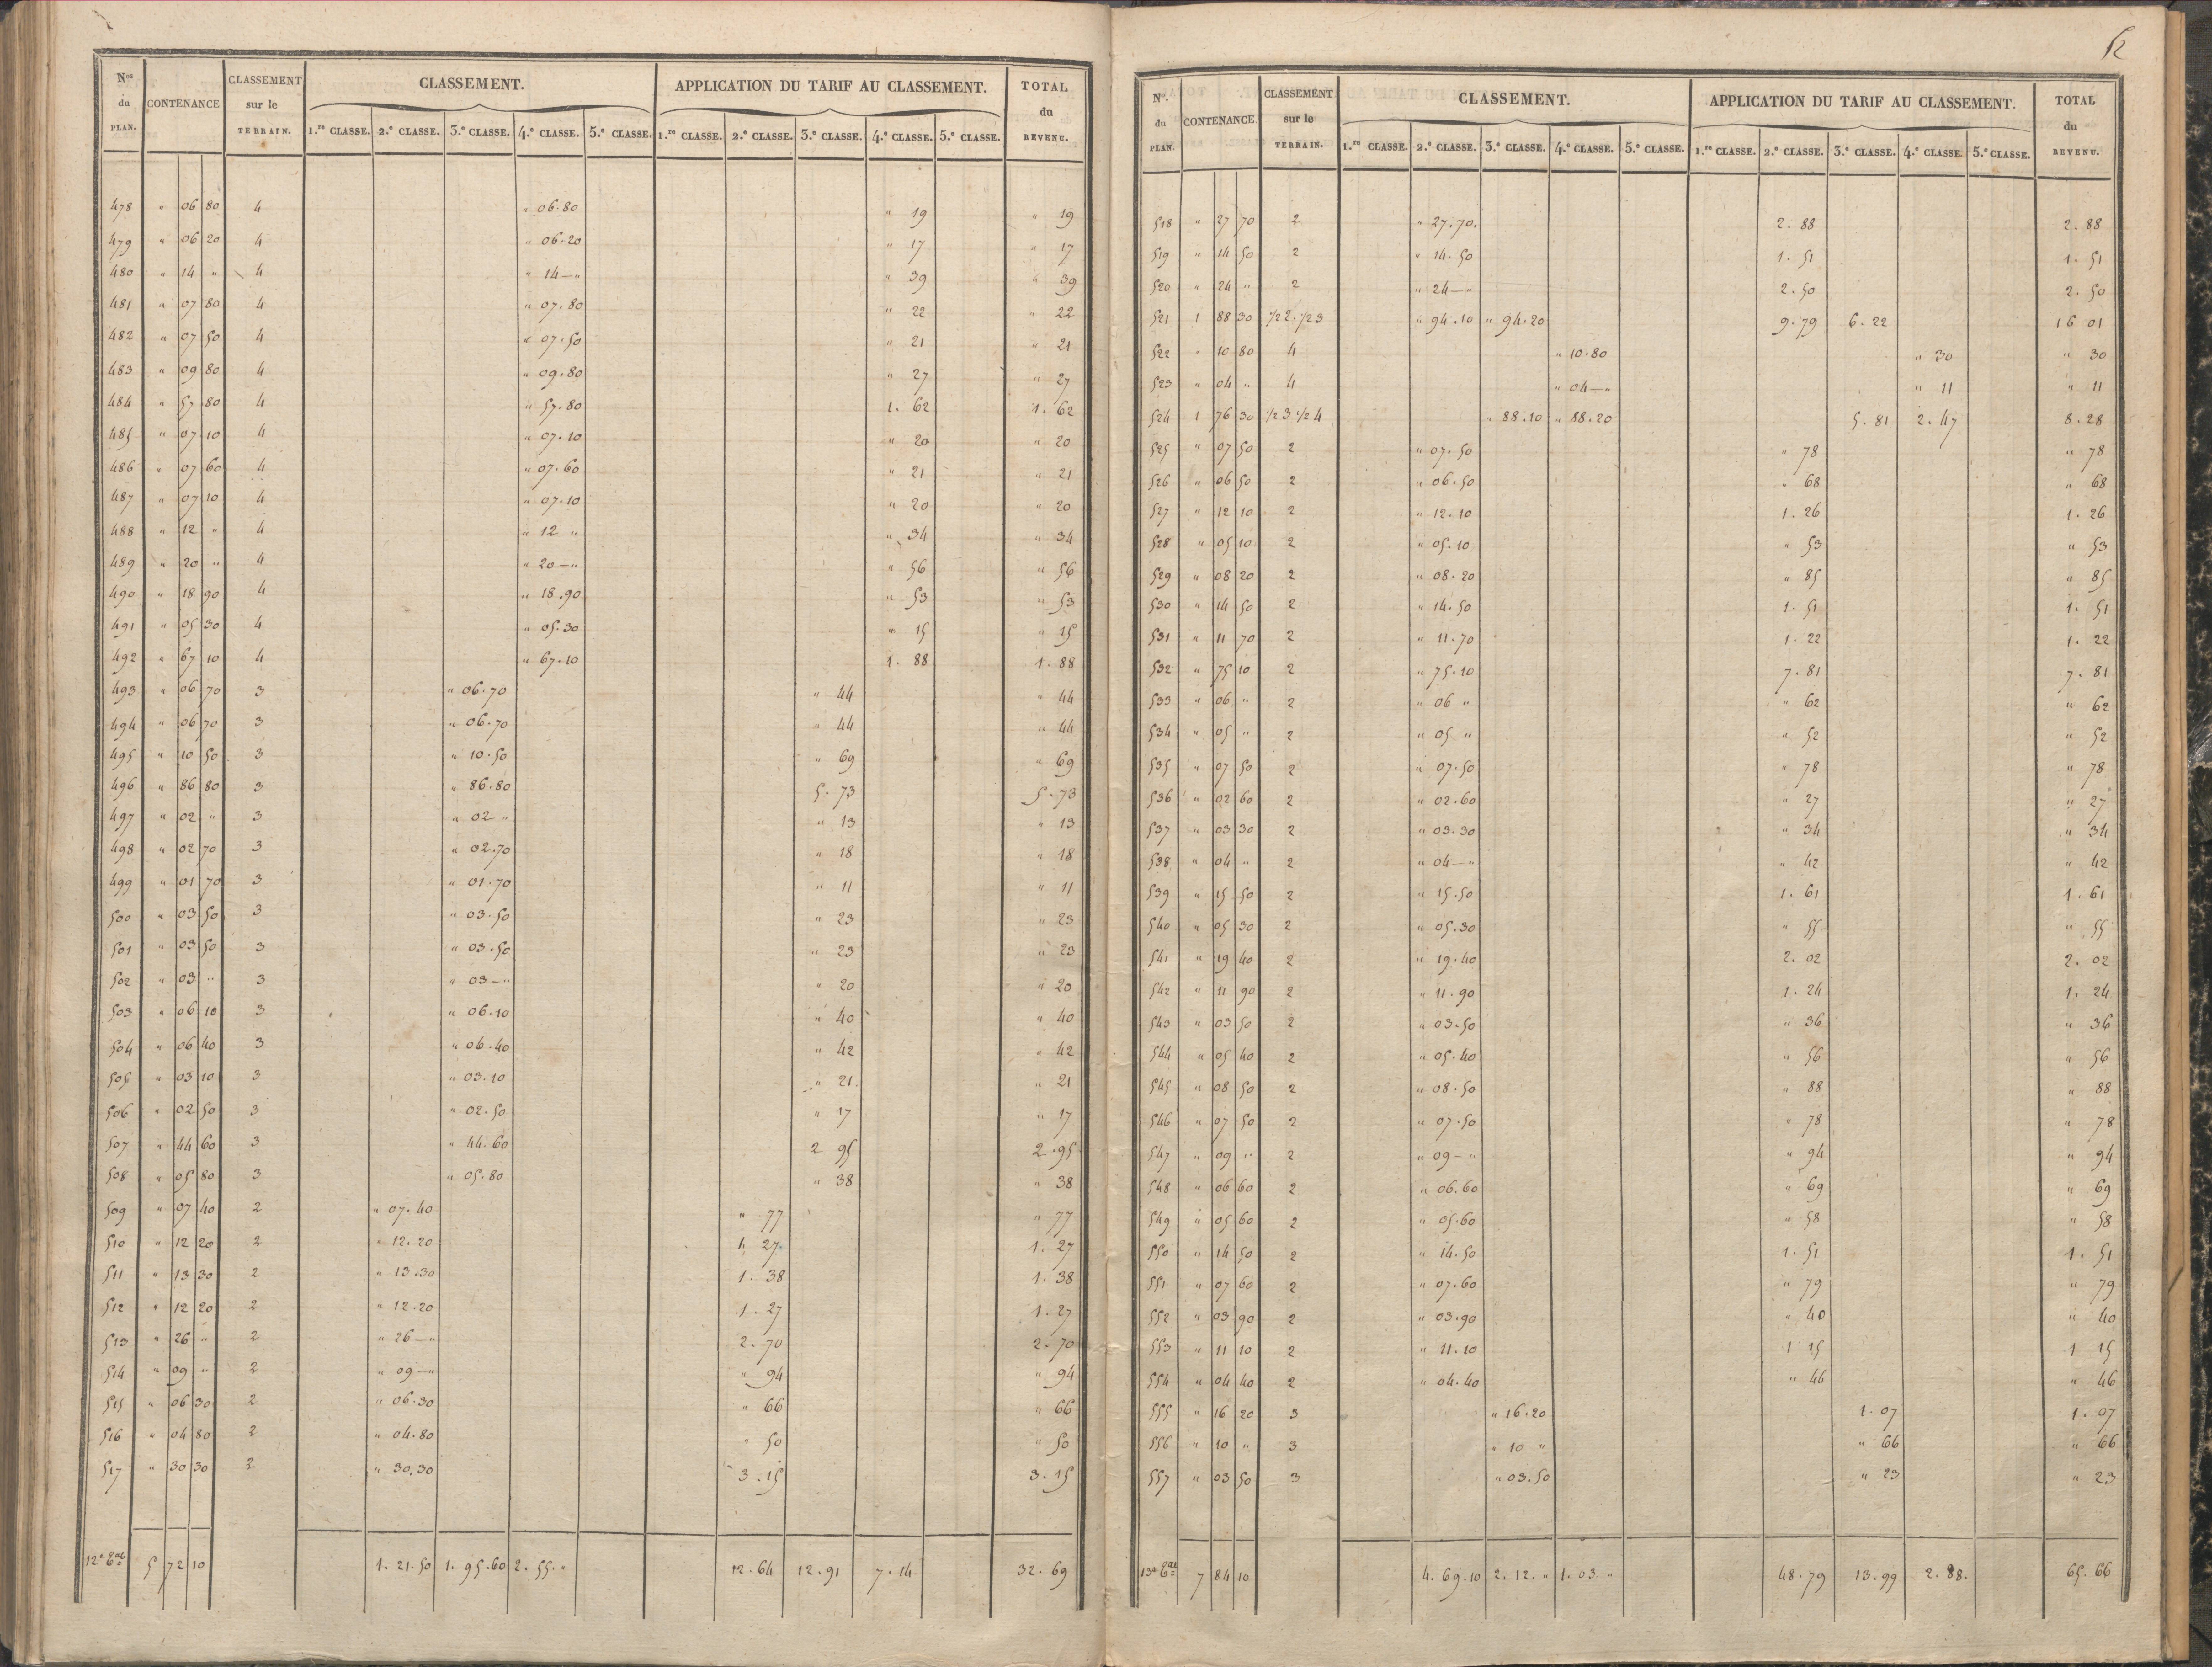 52
N.os du PLAN. CONTENANCE CLASSEMENT sur le TERRAIN. CLASSEMENT. APPLICATION DU TARIF AU CLASSEMENT. TOTAL du REVENU.
1.re CLASSE. 2.e CLASSE. 3.e CLASSE. 4.e CLASSE. 5.e CLASSE. 1.re CLASSE. 2.e CLASSE. 3.e CLASSE. 4.e CLASSE. 5.e CLASSE.
478 " 06 80 4 " 06.80 " 19 " 19
479 " 06 20 4 " 06.20 " 17 " 17
480 " 14 " 4 " 14 — " " 39 " 39
481 " 07 80 4 " 07.80 " 22 " 22
482 " 07 50 4 " 07.50 " 21 " 21
483 " 09 80 4 " 09.80 " 27 " 27
484 " 57 80 4 " 57.80 1. 62 1. 62
485 " 07 10 4 " 07.10 " 20 " 20
486 " 07 60 4 " 07.60 " 21 " 21
487 " 07 10 4 " 07.10 " 20 " 20
488 " 12 " 4 " 12 " " 34 " 34
489 " 20 " 4 " 20 — " " 56 " 56
490 " 18 90 4 " 18.90 " 53 " 53
491 " 05 30 4 " 05.30 " 15 " 15
492 " 67 10 4 " 67.10 1. 88 1. 88
493 " 06 70 3 " 06.70 " 44 " 44
494 " 06 70 3 " 06.70 " 44 " 44
495 " 10 50 3 " 10.50 " 69 " 69
496 " 86 80 3 " 86.80 5. 73 5. 73
497 " 02 " 3 " 02 " " 13 " 13
498 " 02 70 3 " 02.70 " 18 " 18
499 " 01 70 3 " 01.70 " 11 " 11
500 " 03 50 3 " 03.50 " 23 " 23
501 " 03 50 3 " 03.50 " 23 " 23
502 " 03 " 3 " 03 — " " 20 " 20
503 " 06 10 3 " 06.10 " 40 " 40
504 " 06 40 3 " 06.40 " 42 " 42
505 " 03 10 3 " 03.10 " 21. " 21
506 " 02 50 3 " 02.50 " 17 " 17
507 " 44 60 3 " 44.60 2 95 2.95
508 " 05 80 3 " 05.80 " 38 " 38
509 " 07 40 2 " 07.40 " 77 " 77
510 " 12 20 2 " 12.20 1. 27 1. 27
511 " 13 30 2 " 13.30 1. 38 1. 38
512 " 12 20 2 " 12.20 1. 27 1. 27
513 " 26 " 2 " 26 — " 2. 70 2. 70
514 " 09 " 2 " 09 — " " 94 " 94
515 " 06 30 2 " 06.30 " 66 " 66
516 " 04 80 2 " 04.80 " 50 " 50
517 " 30 30 2 " 30,30 3. 15 3. 15
5 72 10 1. 21.50 1. 95.60 2. 55. " 12.64 12.91 7.14 32.69
N.o du PLAN. CONTENANCE. CLASSEMENT sur le TERRAIN. CLASSEMENT. APPLICATION DU TARIF AU CLASSEMENT. TOTAL du REVENU.
1.re CLASSE. 2.e CLASSE. 3.e CLASSE. 4.e CLASSE. 5.e CLASSE. 1.re CLASSE. 2.e CLASSE. 3.e CLASSE. 4.e CLASSE. 5.e CLASSE.
518 " 27 70 2 " 27.70. 2. 88 2. 88
519 " 14 50 2 " 14.50 1. 51 1. 51
520 " 24 " 2 " 24 — " 2. 50 2. 50
521 1 88 30 1/2 2. 1/2 3 " 94.10 " 94.20 9. 79 6. 22 16 01
522 " 10 80 4 " 10.80 " 30 " 30
523 " 04 " 4 " 04 — " " 11 " 11
524 1 76 30 1/2 3 1/2 4 " 88.10 " 88.20 5. 81 2. 47 8.28
525 " 07 50 2 " 07.50 " 78 " 78
526 " 06 50 2 " 06.50 " 68 " 68
527 " 12 10 2 " 12.10 1. 26 1. 26
528 " 05 10 2 " 05.10 " 53 " 53
529 " 08 20 2 " 08.20 " 85 " 85
530 " 14 50 2 " 14.50 1. 51 1. 51
531 " 11 70 2 " 11.70 1. 22 1. 22
532 " 75 10 2 " 75.10 7. 81 7. 81
533 " 06 " 2 " 06 " " 62 " 62
534 " 05 " 2 " 05 " " 52 " 52
535 " 07 50 2 " 07.50 " 78 " 78
536 " 02 60 2 " 02.60 " 27 " 27
537 " 03 30 2 " 03.30 " 34 " 34
538 " 04 " 2 " 04 — " " 42 " 42
539 " 15 50 2 " 15.50 1. 61 1. 61
540 " 05 30 2 " 05.30 " 55 " 55
541 " 19 40 2 " 19.40 2. 02 2. 02
542 " 11 90 2 " 11.90 1. 24 1. 24
543 " 03 50 2 " 03.50 " 36 " 36
544 " 05 40 2 " 05.40 " 56 " 56
545 " 08 50 2 " 08.50 " 88 " 88
546 " 07 50 2 " 07.50 " 78 " 78
547 " 09 " 2 " 09 — " " 94 " 94
548 " 06 60 2 " 06.60 " 69 " 69
549 " 05 60 2 " 05.60 " 58 " 58
550 " 14 50 2 " 14.50 1. 51 1. 51
551 " 07 60 2 " 07.60 " 79 " 79
552 " 03 90 2 " 03.90 " 40 " 40
553 " 11 10 2 " 11.10 1 15 1 15
554 " 04 40 2 " 04.40 " 46 " 46
555 " 16 20 3 " 16.20 1. 07 1. 07
556 " 10 " 3 " 10 " " 66 " 66
557 " 03 50 3 " 03.50 " 23 " 23
7 84 10 4. 69.10 2. 12. " 1. 03. " 48.79 13.99 2. 88. 65.66